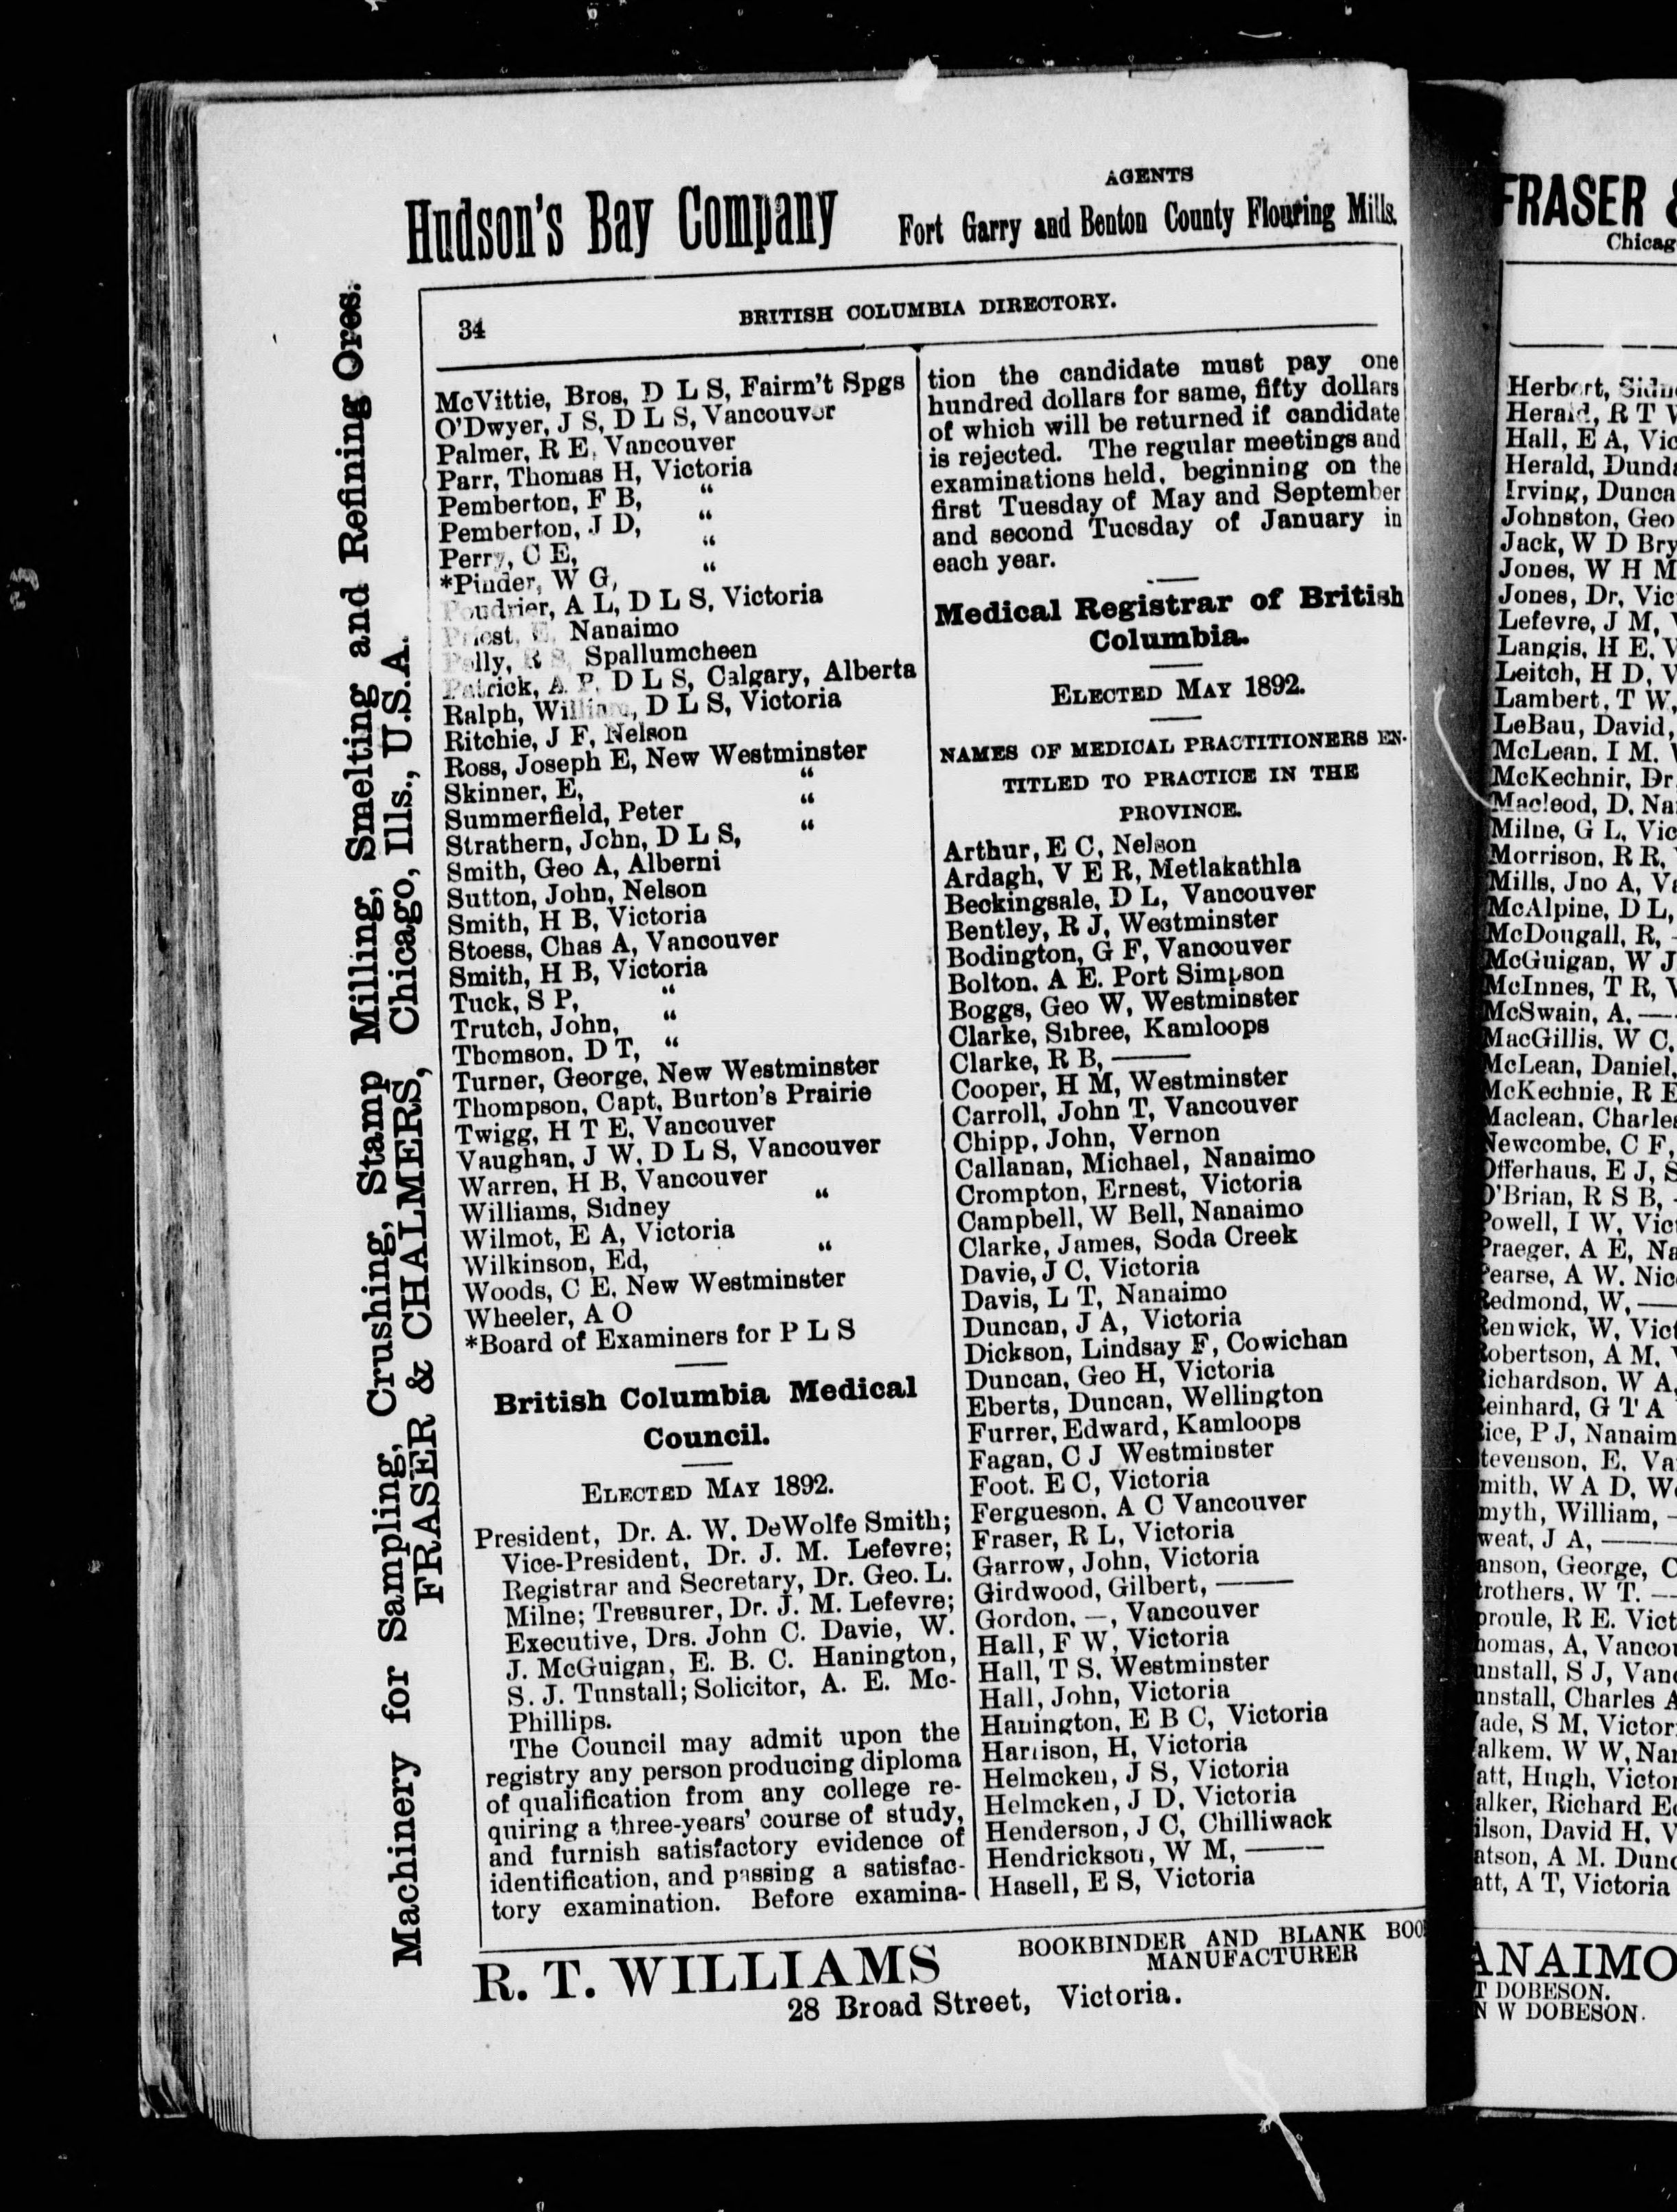 AGENTS
Hudson's Bay Company Fort Garry and Benton County Flouring Mills.
Machinery for Sampling, Crushing, Stamp Milling, Smelting and Refining Ores.
FRASER & CHALMERS, Chicago, Ills., U.S.A.
34 BRITISH COLUMBIA DIRECTORY.
McVittie, Bros, D L S, Fairm't Spgs
O'Dwyer, J S, D L S, Vancouver
Palmer, R E, Vancouver
Parr, Thomas H, Victoria
Pemberton, F B, "
Pemberton, J D, "
Perry, C E, "
*Pinder, W G, "
Poudrier, A L, D L S, Victoria
Priest, E, Nanaimo
Pelly, R S, Spallumcheen
Patrick, A P, D L S, Calgary, Alberta
Ralph, William, D L S, Victoria
Ritchie, J F, Nelson
Ross, Joseph E, New Westminster
Skinner, E, "
Summerfield, Peter "
Strathern, John, D L S, "
Smith, Geo A, Alberni
Sutton, John, Nelson
Smith, H B, Victoria
Stoess, Chas A, Vancouver
Smith, H B, Victoria
Tuck, S P, "
Trutch, John, "
Thomson, D T, "
Turner, George, New Westminster
Thompson, Capt, Burton's Prairie
Twigg, H T E, Vancouver
Vaughan, J W, D L S, Vancouver
Warren, H B, Vancouver
Williams, Sidney "
Wilmot, E A, Victoria
Wilkinson, Ed, "
Woods, C E, New Westminster
Wheeler, A O
*Board of Examiners for P L S
British Columbia Medical
Council.
ELECTED MAY 1892.
President, Dr. A. W. DeWolfe Smith;
Vice-President, Dr. J. M. Lefevre;
Registrar and Secretary, Dr. Geo. L.
Milne; Treasurer, Dr. J. M. Lefevre;
Executive, Drs. John C. Davie, W.
J. McGuigan, E. B. C. Hanington,
S. J. Tunstall; Solicitor, A. E. Mc-
Phillips.
The Council may admit upon the
registry any person producing diploma
of qualification from any college re-
quiring a three-years' course of study,
and furnish satisfactory evidence of
identification, and passing a satisfac-
tory examination. Before examina-
tion the candidate must pay one
hundred dollars for same, fifty dollars
of which will be returned if candidate
is rejected. The regular meetings and
examinations held, beginning on the
first Tuesday of May and September
and second Tuesday of January in
each year.
Medical Registrar of British
Columbia.
ELECTED MAY 1892.
NAMES OF MEDICAL PRACTITIONERS EN-
TITLED TO PRACTICE IN THE
PROVINCE.
Arthur, E C, Nelson
Ardagh, V E R, Metlakathla
Beckingsale, D L, Vancouver
Bentley, R J, Westminster
Bodington, G F, Vancouver
Bolton. A E. Port Simpson
Boggs, Geo W, Westminster
Clarke, Sibree, Kamloops
Clarke, R B, ——
Cooper, H M, Westminster
Carroll, John T, Vancouver
Chipp, John, Vernon
Callanan, Michael, Nanaimo
Crompton, Ernest, Victoria
Campbell, W Bell, Nanaimo
Clarke, James, Soda Creek
Davie, J C, Victoria
Davis, L T, Nanaimo
Duncan, J A, Victoria
Dickson, Lindsay F, Cowichan
Duncan, Geo H, Victoria
Eberts, Duncan, Wellington
Furrer, Edward, Kamloops
Fagan, C J Westminster
Foot. E C, Victoria
Fergueson, A C Vancouver
Fraser, R L, Victoria
Garrow, John, Victoria
Girdwood, Gilbert, ——
Gordon, —, Vancouver
Hall, F W, Victoria
Hall, T S, Westminster
Hall, John, Victoria
Hanington, E B C, Victoria
Harrison, H, Victoria
Helmcken, J S, Victoria
Helmcken, J D, Victoria
Henderson, J C, Chilliwack
Hendrickson, W M, ——
Hasell, E S, Victoria
R. T. WILLIAMS BOOKBINDER AND BLANK BOO
MANUFACTURER
28 Broad Street, Victoria.
FRASER &
Chicag
Herbert,
Herald, R T
Hall, E A, Vic
Herald, Dunda
Irving, Dunca
Johnston, Geo
Jack, W D Bry
Jones, W H M
Jones, Dr, Vic
Lefevre, J M,
Langis, H E, V
Leitch, H D, V
Lambert, T W,
LeBau, David,
McLean, I M.
McKechnir, Dr
Macleod, D, Na
Milne, G L, Vic
Morrison, R R,
Mills, Jno A, Va
McAlpine, D L,
McDougall, R,
McGuigan, W J
McInnes, T R, V
McSwain, A, —
MacGillis, W C,
McLean, Daniel,
McKechnie, R E
Maclean, Charles
Newcombe, C F,
Offerhaus, E J, S
O'Brian, R S B,
Powell, I W, Vic
Praeger, A E, Na
Pearse, A W. Nic
Redmond, W, —
Renwick, W, Vict
Robertson, A M,
Richardson, W A,
Reinhard, G T A
Rice, P J, Nanaim
tevenson, E, Va
mith, W A D, We
myth, William, —
weat, J A, ——
anson, George, C
trothers, W T. —
proule, R E. Vict
homas, A, Vancou
unstall, S J, Vanc
unstall, Charles A
ade, S M, Victor
alkem, W W, Nan
att, Hugh, Victor
alker, Richard E
ilson, David H, V
atson, A M. Dunc
att, A T, Victoria
ANAIMO
T DOBESON.
N W DOBESON.